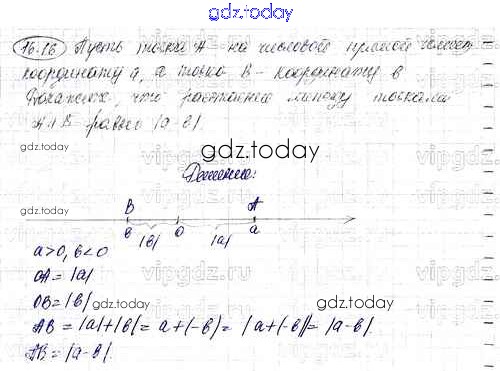 gdz.today
16.16 Пусть точка A на числовой прямой имеет
координату a, а точка B - координату в.
Докажите, что расстояние между точками
A и B равно |a-в|.
gdz.today
gdz.today
vipgdz.today
Решение:
B A
в |в| 0 |a| a
a>0, в<0
OA = |a|
OB = |в|
gdz.today
AB = |a|+|в| = a+(-в) = |a+(-в)| = |a-в|
AB = |a-в|.
gdz.today